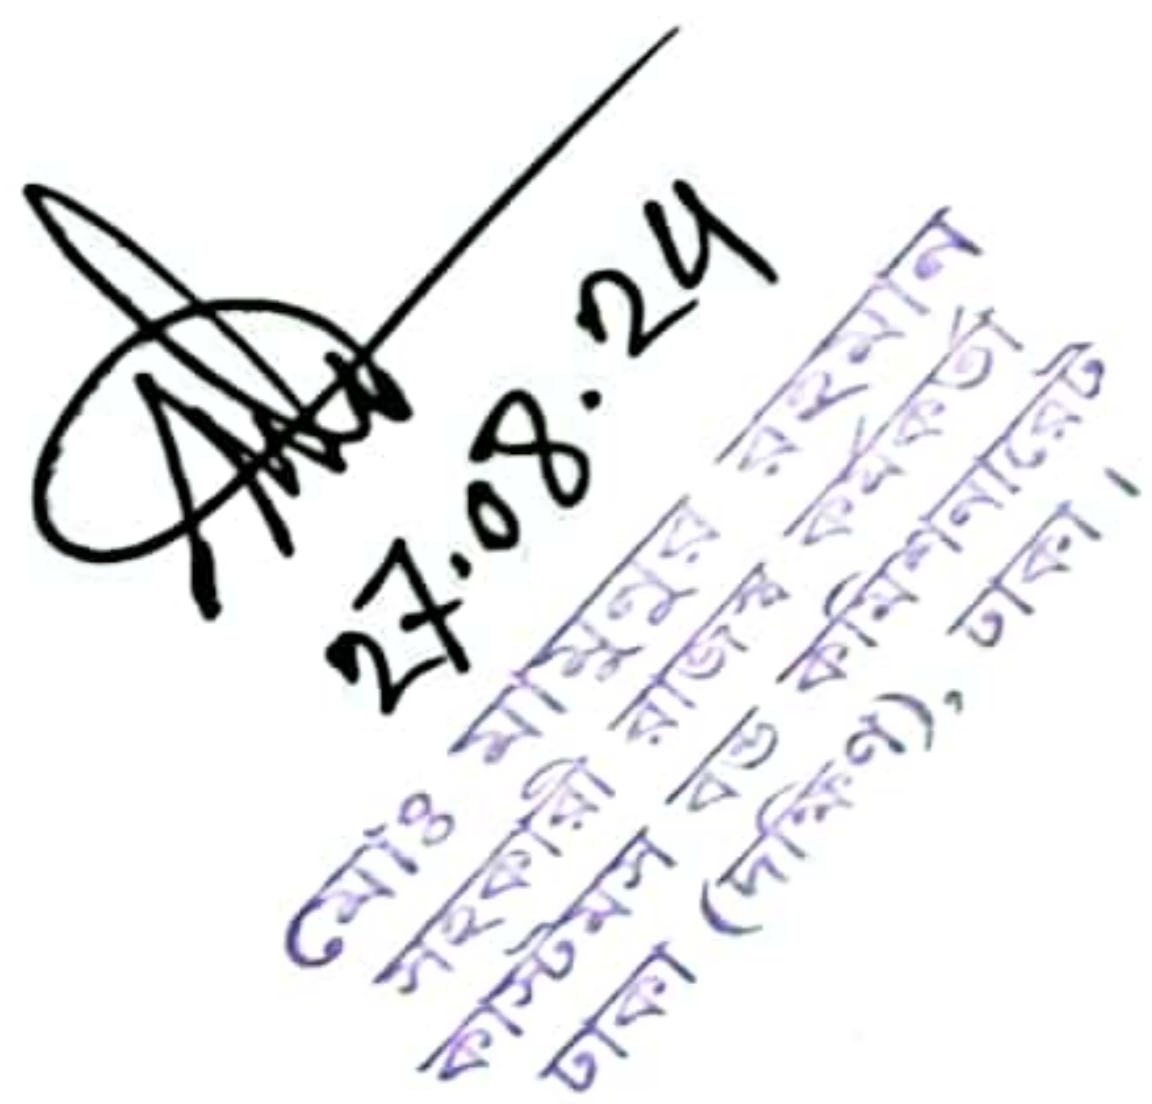 27.08.24
মোঃ মাসুদুর রহমান
সহকারী রাজস্ব কর্মকর্তা
কাস্টমস বন্ড কমিশনারেট
ঢাকা (দক্ষিণ), ঢাকা।